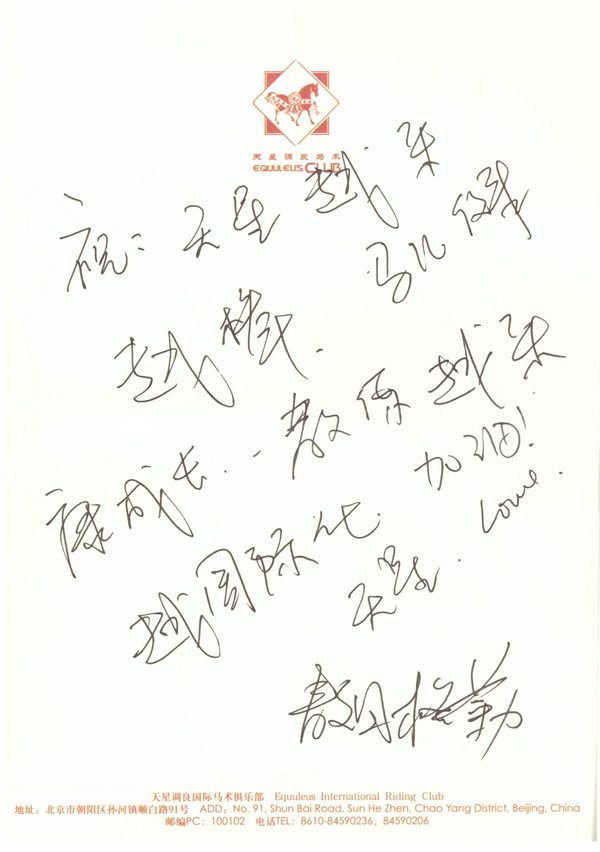 天星调良马术
EQUULEUS CLUB
祝：天星越来
越棒. 马儿健
康成长. 教练越来
越国际化. 加油!
天星. Love.
敖日格勒
天星调良国际马术俱乐部 Equuleus International Riding Club
地址：北京市朝阳区孙河镇顺白路91号 ADD: No. 91, Shun Bai Road, Sun He Zhen, Chao Yang District, Beijing, China
邮编PC: 100102 电话TEL: 8610-84590236、84590206